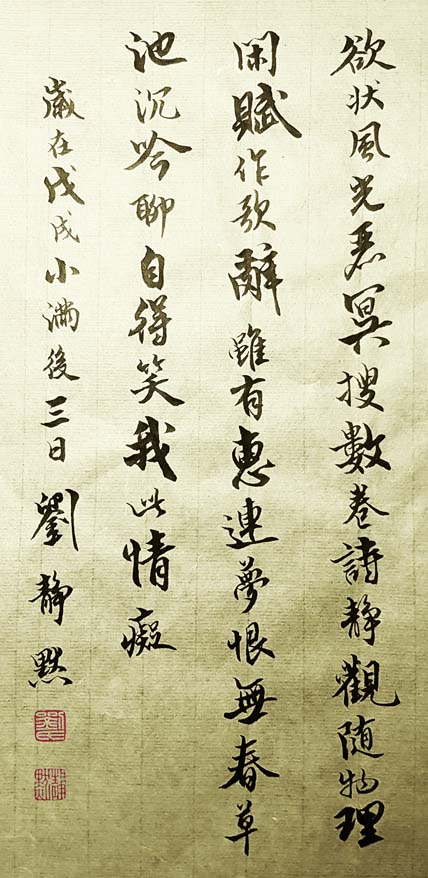 欲状風光冥搜數卷詩静觀随物理
閑賦作歌辭雖有惠連夢恨無春草
池沉吟聊自得笑我此情癡
歲在戊戌小滿後三日劉静默